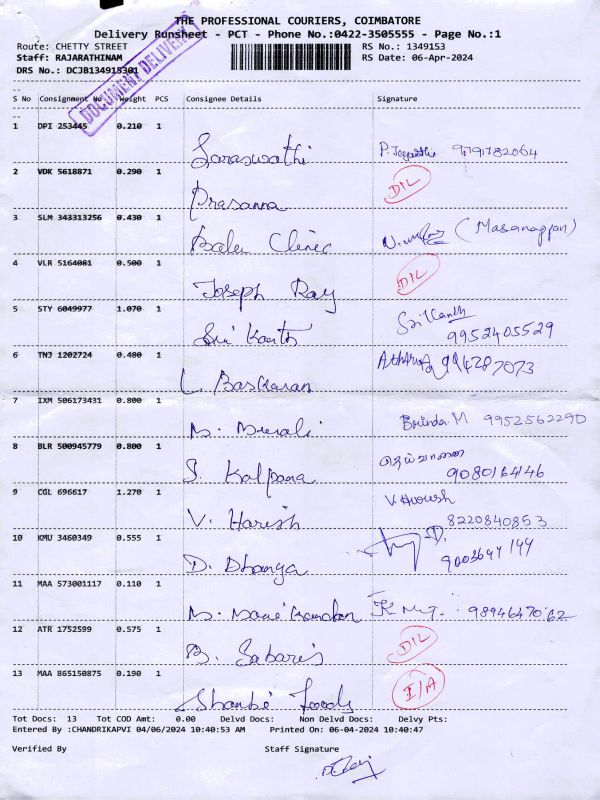 THE PROFESSIONAL COURIERS, COIMBATORE
Delivery Runsheet - PCT - Phone No.:0422-3505555 - Page No.:1
Route: CHETTY STREET RS No.: 1349153
Staff: RAJARATHINAM RS Date: 06-Apr-2024
DRS No.: DCJB134915301
DOCUMENT DELIVERY
S No Consignment No Weight PCS Consignee Details Signature
1 DPI 253445 0.210 1
Saraswathi P. Jayanthi 9791782064
2 VDK 5618871 0.290 1
Prasanna D/L
3 SLM 343313256 0.430 1
Balu Clinic (Masanappan)
4 VLR 5164081 0.500 1
Joseph Ray D/L
5 STY 6049977 1.070 1
Sri Kanth SriKanth
9952405529
6 TNJ 1202724 0.480 1
L. Baskaran 9944287073
7 IXM 506173431 0.800 1
M. Murali Brinda.M 9952562290
8 BLR 500945779 0.800 1
S. Kalpana தெய்வானை
9080164146
9 CGL 696617 1.270 1
V. Harish V. Harish
8220840853
10 KMU 3460349 0.555 1
D. Dhanya 9003644144
11 MAA 573001117 0.110 1
9894647062
12 ATR 1752599 0.575 1
B. Sabaris D/L
13 MAA 865150875 0.190 1
Foods I/A
Tot Docs: 13 Tot COD Amt: 0.00 Delvd Docs: Non Delvd Docs: Delvy Pts:
Entered By :CHANDRIKAPVI 04/06/2024 10:40:53 AM Printed On: 06-04-2024 10:40:47
Verified By Staff Signature